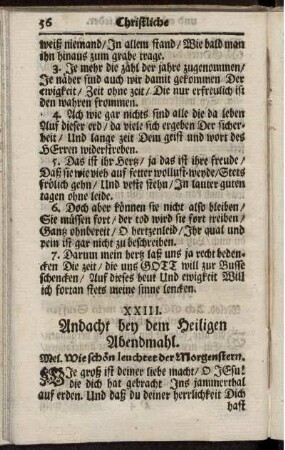 56 Christliche
weiß niemand/ In allem stand/ Wie bald man
ihn hinaus zum grabe trage.
3. Je mehr die zahl der jahre zugenommen/
Je näher sind auch wir damit gekommen Der
ewigkeit/ Zeit ohne zeit/ Die nur erfreulich ist
den wahren frommen.
4. Ach wie gar nichts sind alle die da leben
Auf dieser erd/ da viele sich ergeben Der sicher-
heit/ Und lange zeit Dem geist und wort des
HErren widerstreben.
5. Das ist ihr Hertz/ ja das ist ihre freude/
Daß sie wie vieh auf fetter wollust-weyde/ Stets
frölich gehn/ Und veste stehn/ In lauter guten
tagen ohne leide.
6. Doch aber können sie nicht also bleiben/
Sie müssen fort/ der tod wird sie fort treiben/
Gantz ohnbereit/ O hertzenleid/ Ihr qual und
pein ist gar nicht zu beschreiben.
7. Darum mein hertz laß uns ja recht beden-
cken Die zeit/ die uns GOTT will zur Busse
schencken/ Auf dieses heut Und ewigkeit Will
ich fortan stets meine sinne lencken.
XXIII.
Andacht bey dem Heiligen
Abendmahl.
Mel. Wie schön leuchtet der Morgenstern.
WIe groß ist deiner liebe macht/ O JEsu!
die dich hat gebracht Ins jammerthal
auf erden. Und daß du deiner herrlichkeit Dich
hast